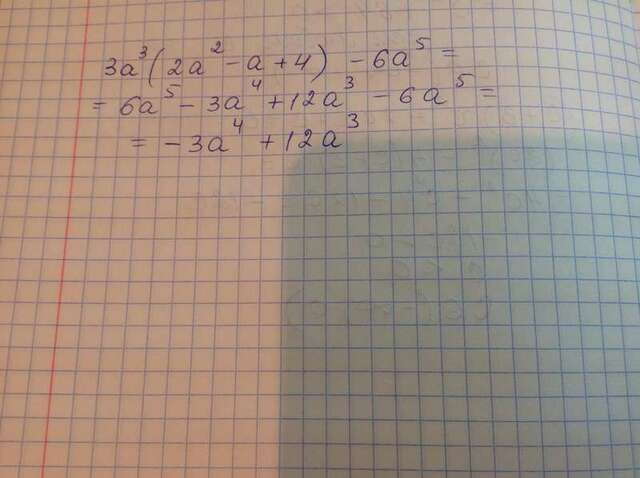 3a³(2a² - a + 4) - 6a⁵ =
= 6a⁵ - 3a⁴ + 12a³ - 6a⁵ =
= - 3a⁴ + 12a³